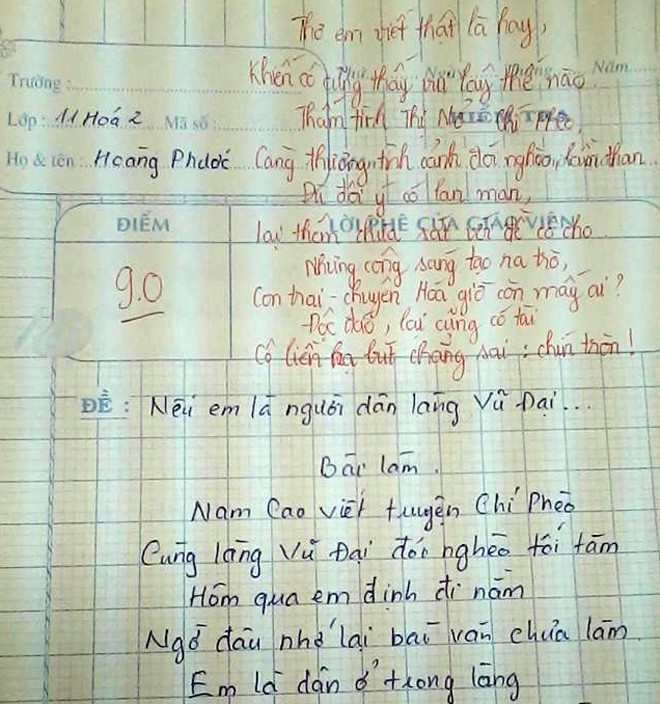 Thơ em viết thật là hay,
Khiến cô cũng thấy vui lây thế nào
Năm
Trường :
Thấm tình Thị Nở - Chí Phèo,
Lớp : 11 Hoá 2 Mã số :
Càng thương tình cảnh đói nghèo, lầm than
Họ & tên : Hoàng Phước
Dù đôi ý có lan man,
ĐIỂM
LỜI PHÊ CỦA GIÁO VIÊN
Lại thêm chưa sát với đề cô cho
9.0
Nhưng công sáng tạo ra trò,
Con trai - chuyên Hoá giờ còn mấy ai?
Độc đáo, lại cũng có tài
Cô liền hạ bút chẳng sai : chín tròn!
ĐỀ : Nếu em là người dân làng Vũ Đại...
Bài làm.
Nam Cao viết truyện Chí Phèo
Cùng làng Vũ Đại đói nghèo tối tăm
Hôm qua em định đi nằm
Ngờ đâu nhớ lại bài văn chưa làm
Em là dân ở trong làng